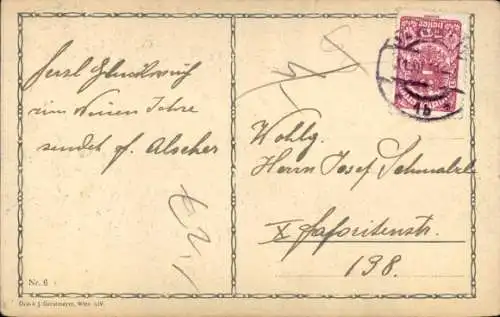 Herzl. Glückwunsch
zum Neuen Jahre
sendet f. Alscher
Wohlg.
Herrn Josef Schmalzl
X Favoritenstr.
198.
1b
Nr. 6
Druck J. Gerstmayer, Wien XIV.